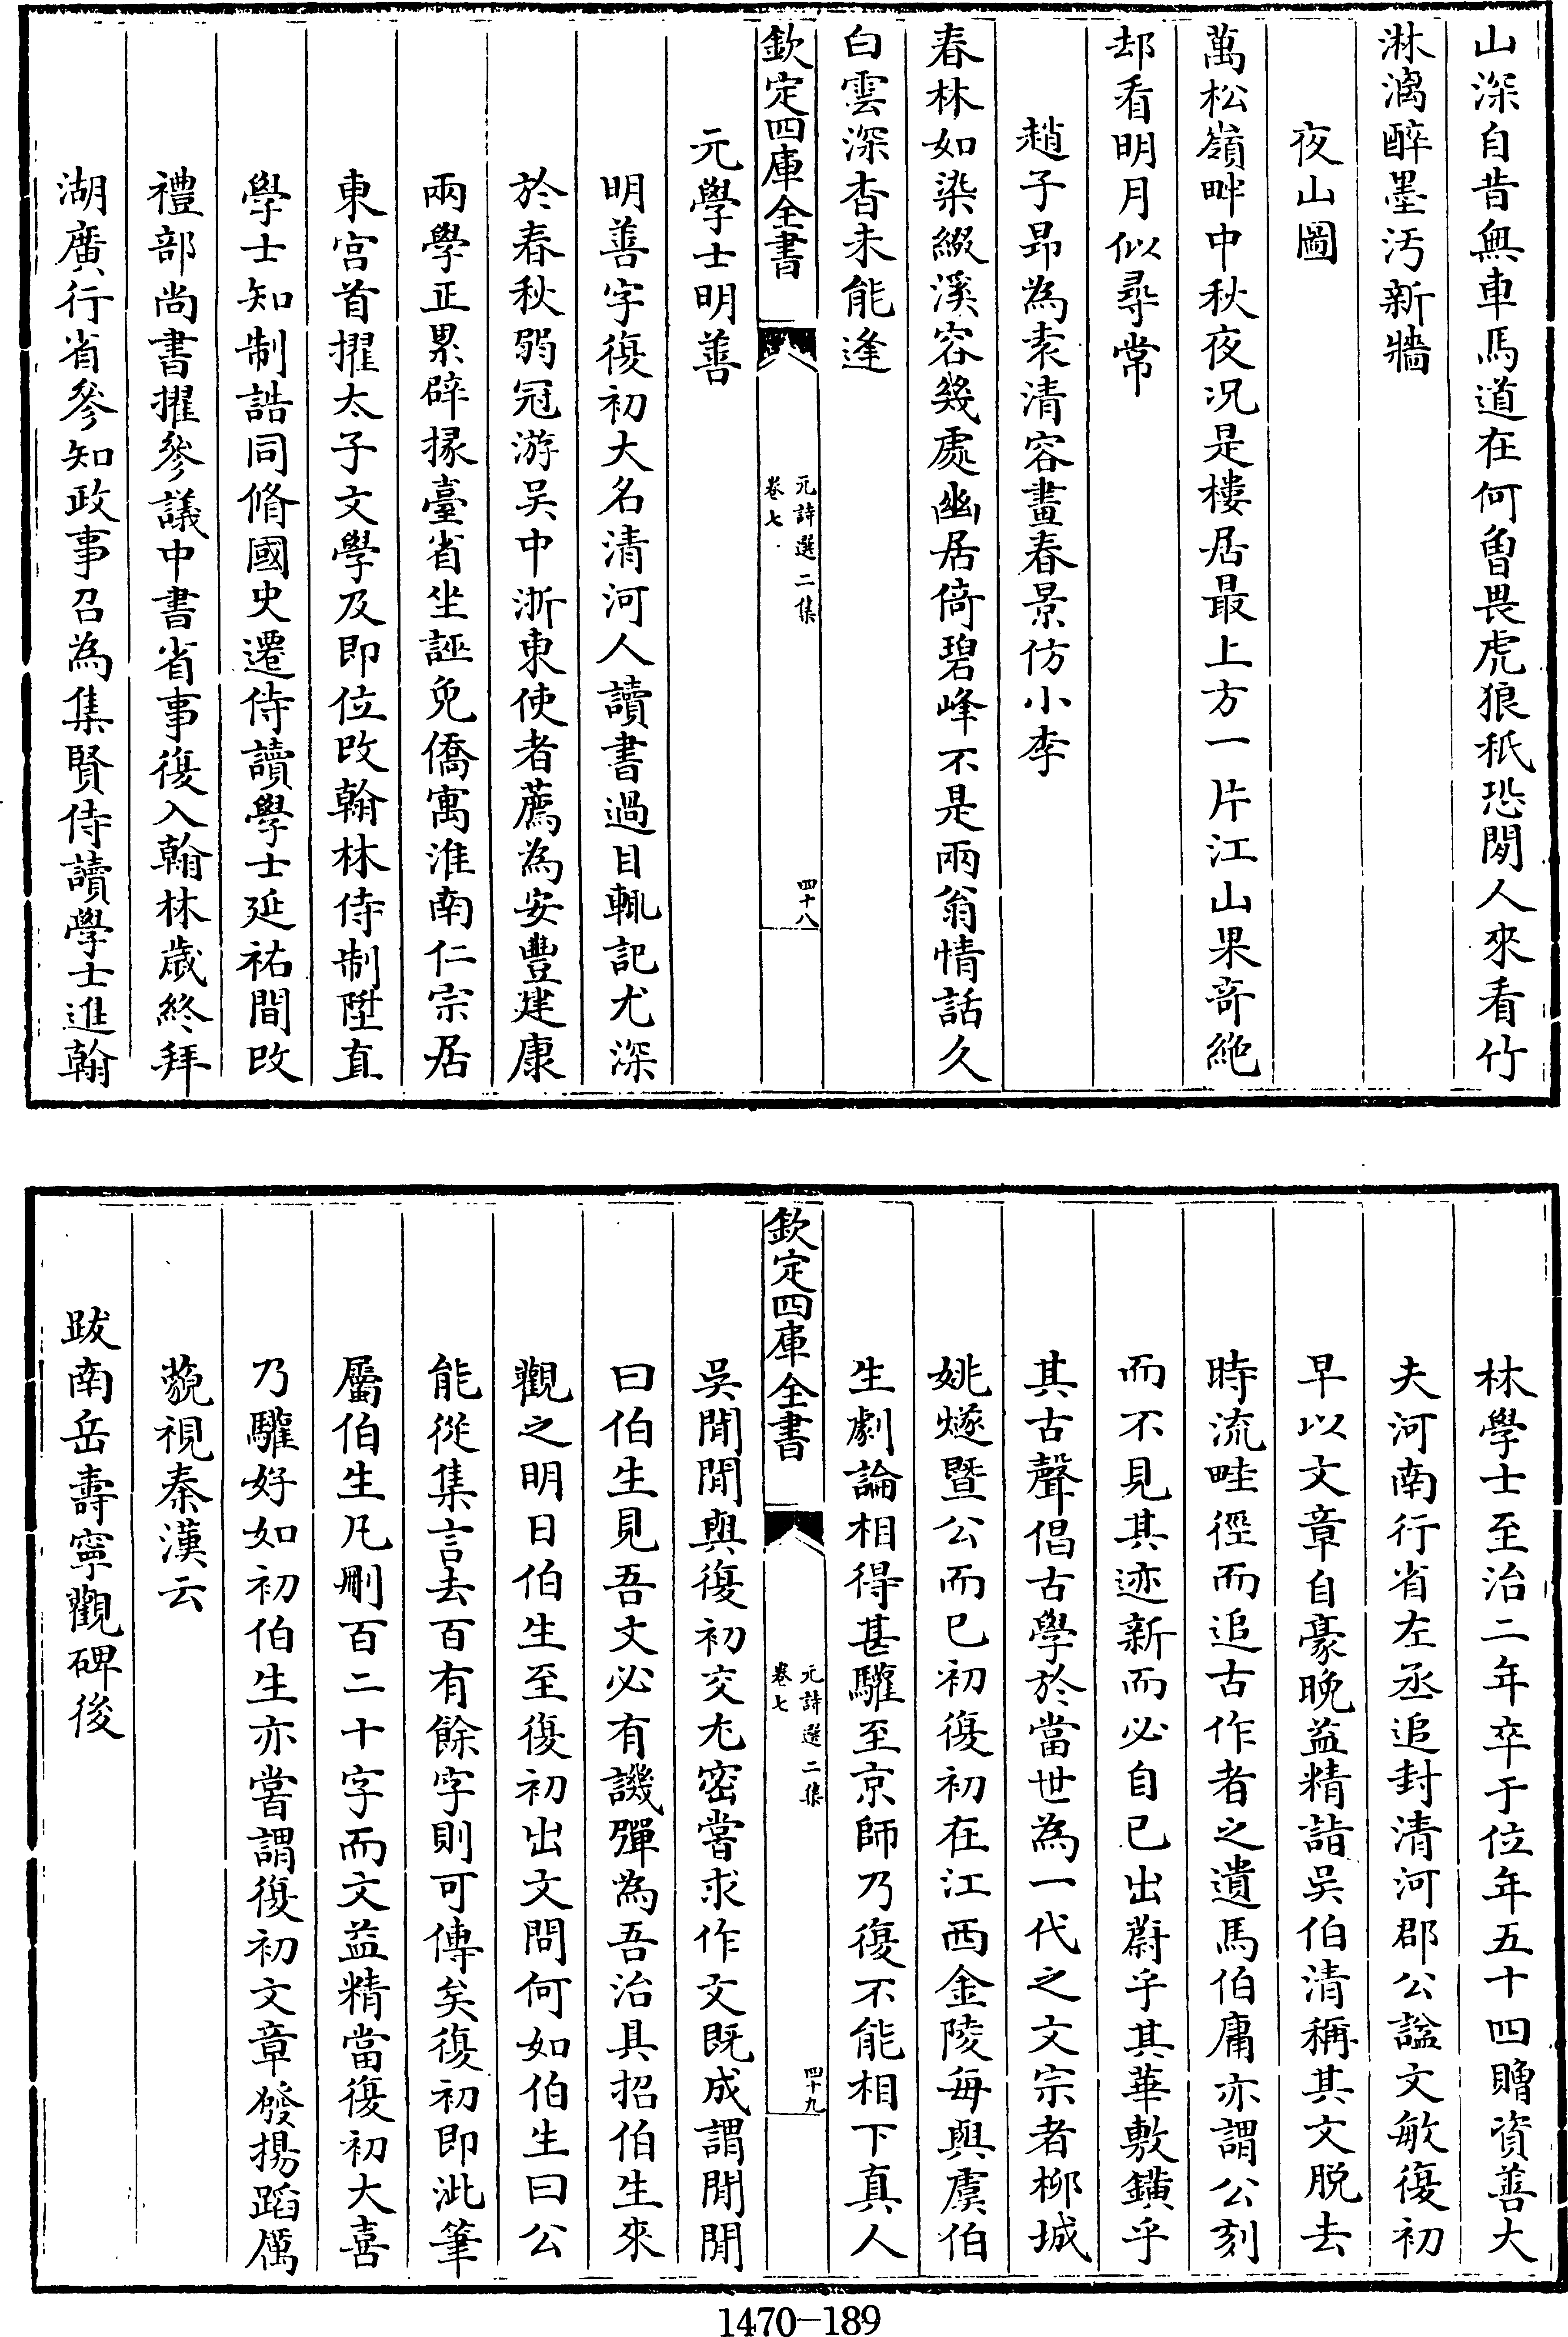 山深自昔無車馬道在何曽畏虎狼秖恐閒人來看竹
淋漓醉墨汚新牆
夜山圖
萬松嶺畔中秋夜况是樓居最上方一片江山果奇絶
却看明月似尋常
趙子昻為袁清容畫春景仿小李
春林如染綴溪容幾處幽居倚碧峰不是兩翁情話久
白雲深杳未能逢
欽定四庫全書
元詩選二集
卷七
四十八
元學士明善
明善字復初大名清河人讀書過目輒記尤深
於春秋弱冠游吴中浙東使者薦為安豐建康
兩學正累辟掾臺省坐誣免僑寓淮南仁宗居
東宫首擢太子文學及即位改翰林侍制陞直
學士知制誥同脩國史遷侍讀學士延祐間改
禮部尚書擢參議中書省事復入翰林歲終拜
湖廣行省參知政事召為集賢侍讀學士進翰
林學士至治二年卒于位年五十四贈資善大
夫河南行省左丞追封清河郡公諡文敏復初
早以文章自豪晚益精詣吳伯清稱其文脱去
時流畦徑而追古作者之遺馬伯庸亦謂公刻
而不見其迹新而必自已出蔚乎其華敷鏷乎
其古聲倡古學於當世為一代之文宗者栁城
姚燧暨公而已初復初在江西金陵每與虞伯
生劇論相得甚驩至京師乃復不能相下真人
欽定四庫全書
元詩選二集
卷七
四十九
吳閒閒與復初交尤密嘗求作文既成謂閒閒
曰伯生見吾文必有譏彈為吾治具招伯生來
觀之明日伯生至復初出文問何如伯生曰公
能從集言去百有餘字則可傳矣復初即泚筆
屬伯生凡刪百二十字而文益精當復初大喜
乃驩好如初伯生亦嘗謂復初文章發揚蹈厲
藐視秦漢云
跋南岳壽寧觀碑後
1470-189